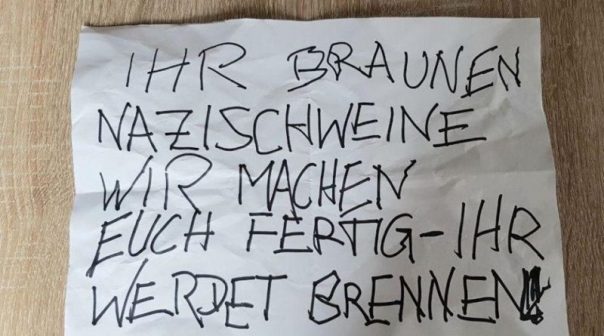 IHR BRAUNEN
NAZISCHWEINE
WIR MACHEN
EUCH FERTIG-IHR
WERDET BRENNEN!!!